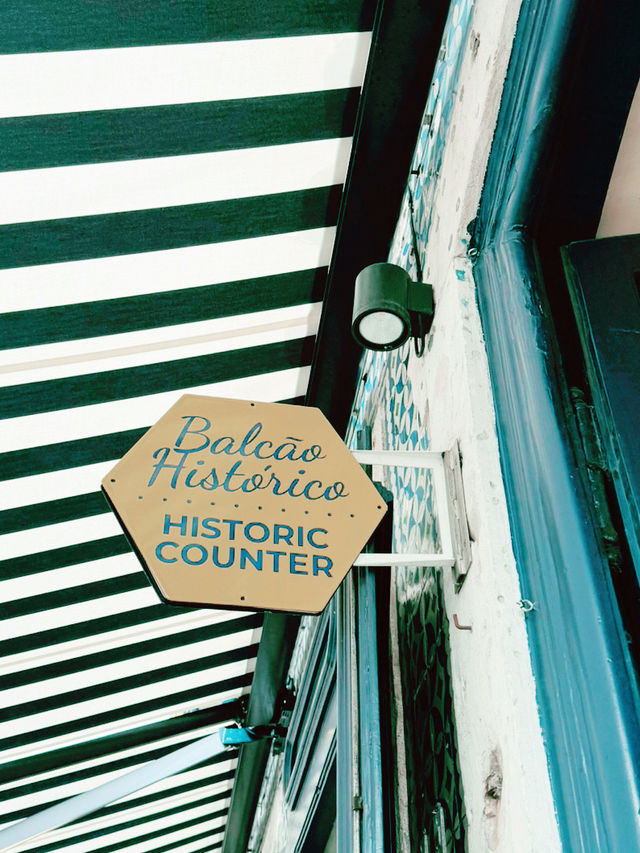 Balcão
Histórico
HISTORIC
COUNTER